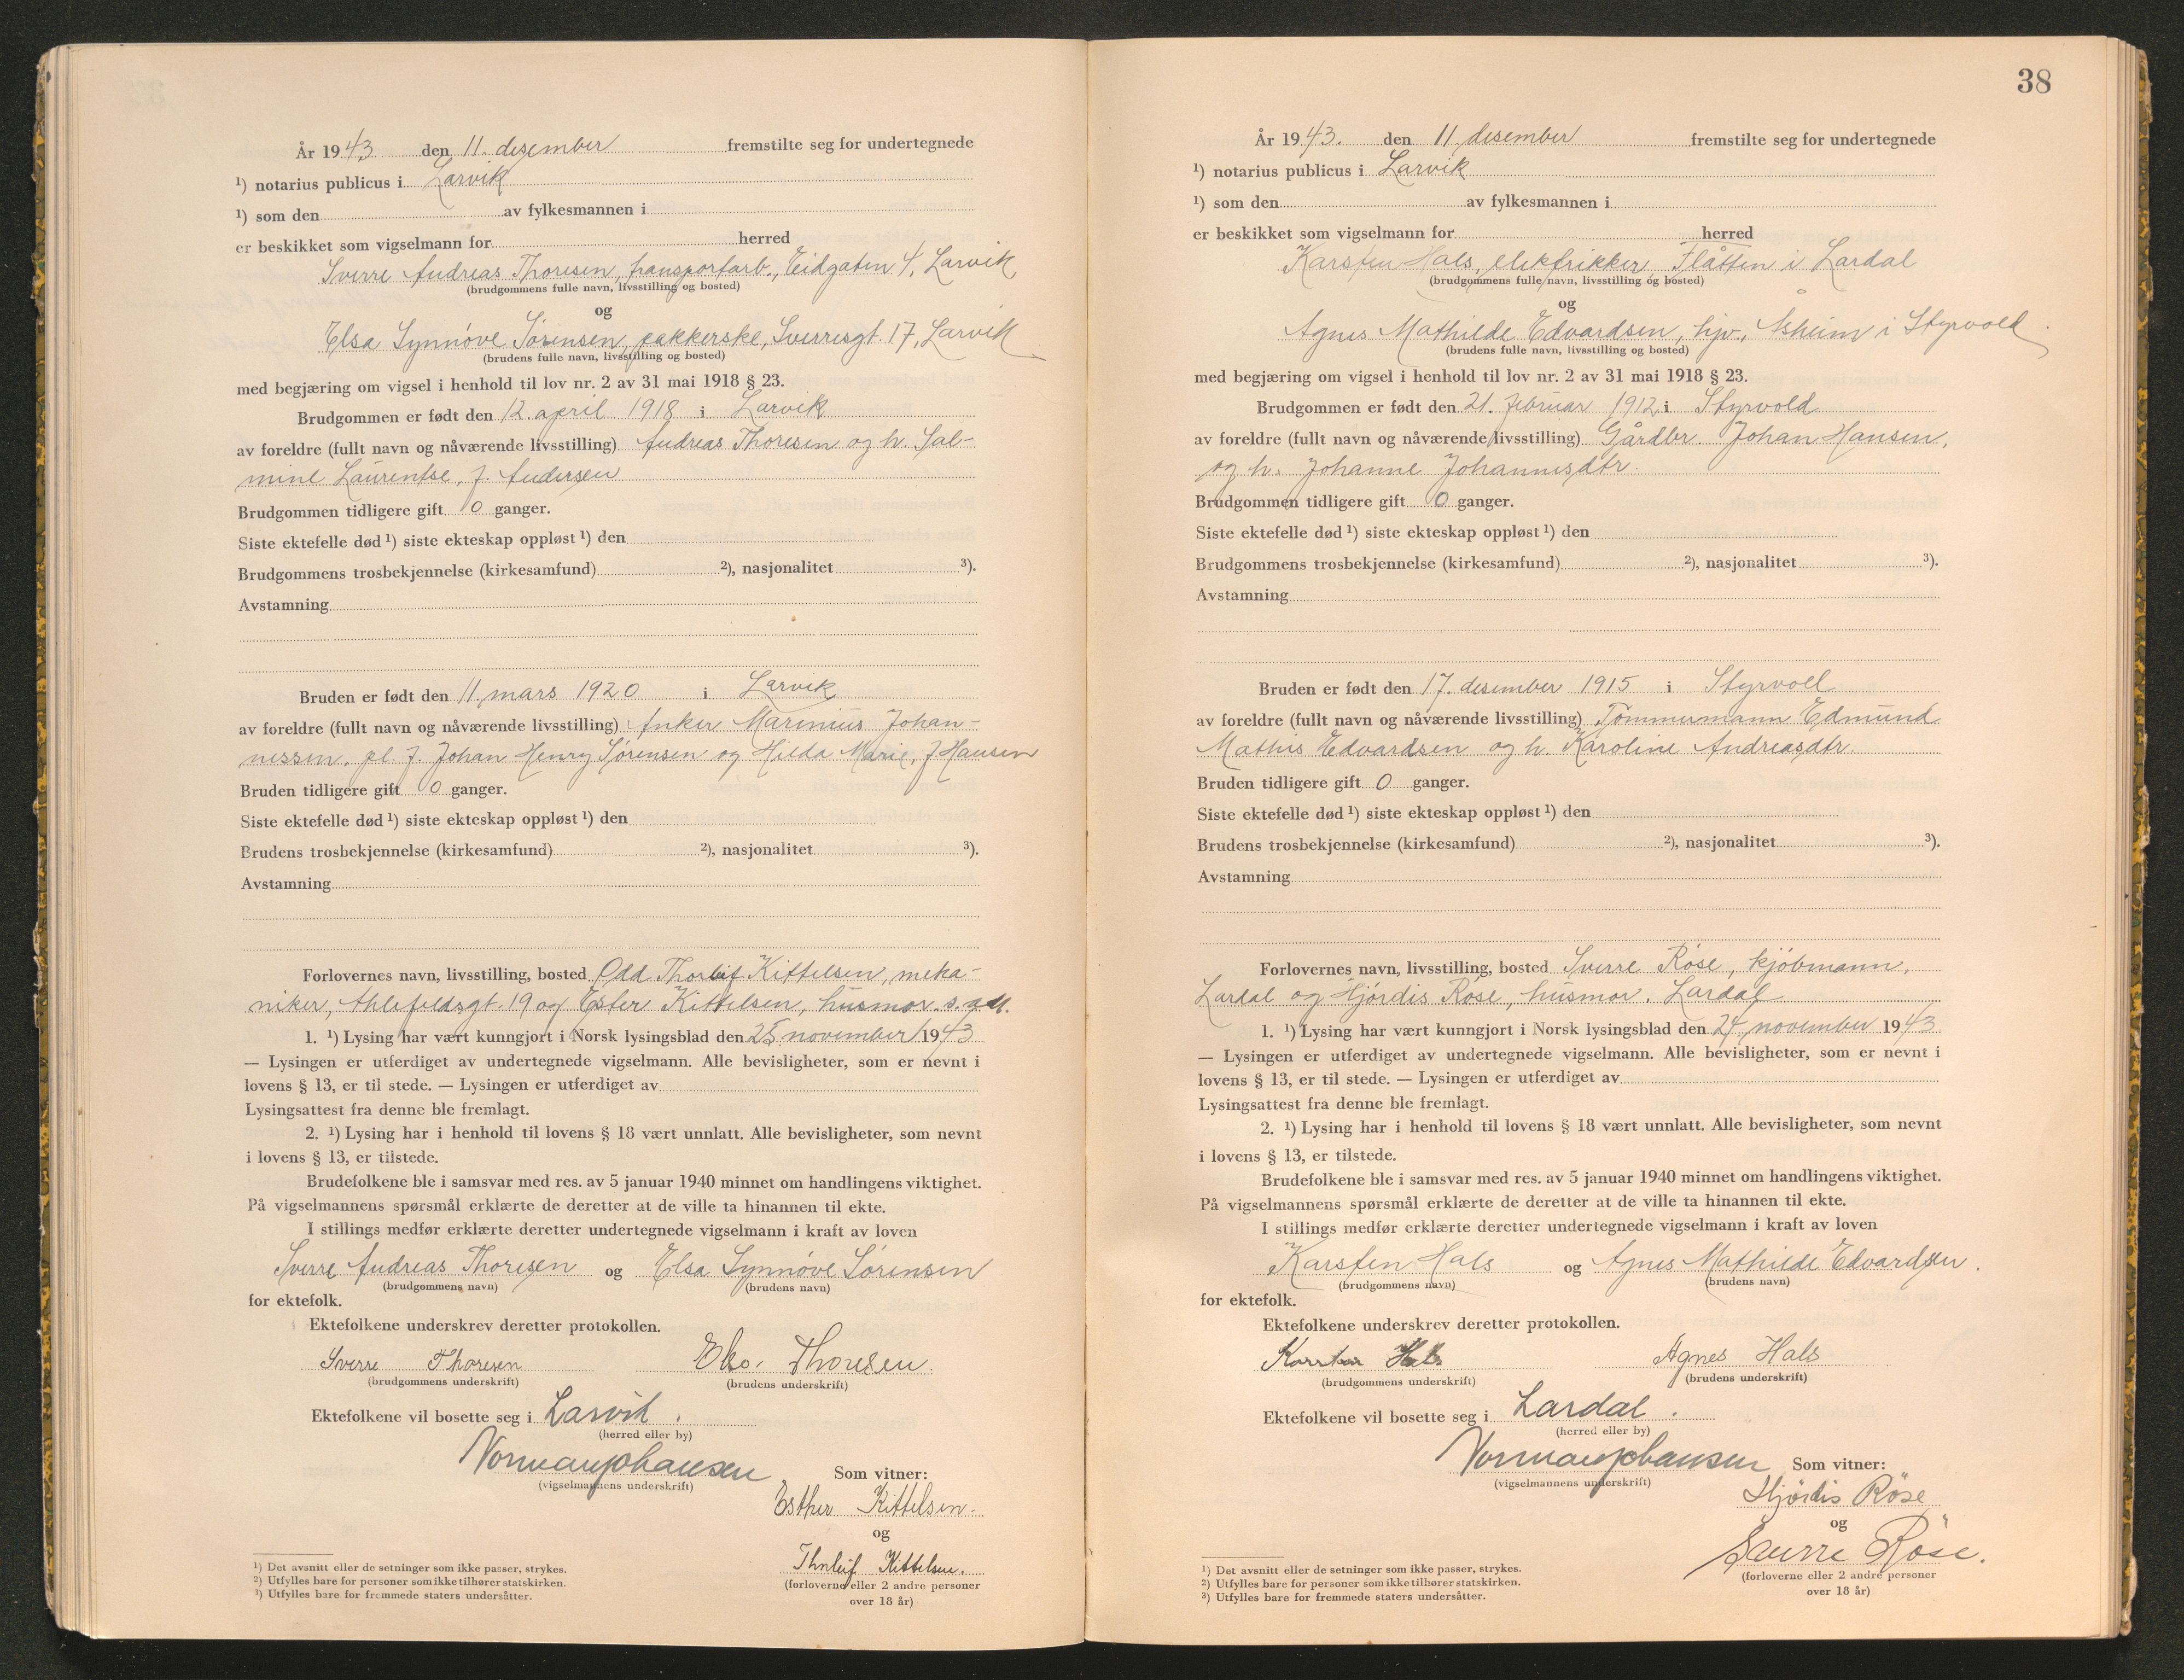 År 1943 den 11. desember fremstilte seg for undertegnede
¹) notarius publicus i Larvik
¹) som den av fylkesmannen i
er beskikket som vigselmann for herred
Sverre Andreas Thoresen, transportarb., Eidgaten 4, Larvik
(brudgommens fulle navn, livsstilling og bosted)
og
Elsa Synnøve Sørensen, pakkerske, Sverresgt. 17, Larvik
(brudens fulle navn, livsstilling og bosted)
med begjæring om vigsel i henhold til lov nr. 2 av 31 mai 1918 § 23.
Brudgommen er født den 12. april 1918 i Larvik
av foreldre (fullt navn og nåværende livsstilling) Andreas Thoresen og h. Sal-
mine Laurentse, f. Andersen
Brudgommen tidligere gift 0 ganger.
Siste ektefelle død ¹) siste ekteskap oppløst ¹) den
Brudgommens trosbekjennelse (kirkesamfund) ²), nasjonalitet ³).
Avstamning
Bruden er født den 11. mars 1920 i Larvik
av foreldre (fullt navn og nåværende livsstilling) Anker Marinius Johan-
nessen, pl. f. Johan Henry Sørensen og Hilda Marie, f. Hansen
Bruden tidligere gift 0 ganger.
Siste ektefelle død ¹) siste ekteskap oppløst ¹) den
Brudens trosbekjennelse (kirkesamfund) ²), nasjonalitet ³).
Avstamning
Forlovernes navn, livsstilling, bosted Odd Thorleif Kittelsen, meka-
niker, Ahlefeldsgt. 19 og Ester Kittelsen, husmor, s.
1. ¹) Lysing har vært kunngjort i Norsk lysingsblad den 25 november 1943
— Lysingen er utferdiget av undertegnede vigselmann. Alle bevisligheter, som er nevnt i
lovens § 13, er til stede. — Lysingen er utferdiget av
Lysingsattest fra denne ble fremlagt.
2. ¹) Lysing har i henhold til lovens § 18 vært unnlatt. Alle bevisligheter, som nevnt
i lovens § 13, er tilstede.
Brudefolkene ble i samsvar med res. av 5 januar 1940 minnet om handlingens viktighet.
På vigselmannens spørsmål erklærte de deretter at de ville ta hinannen til ekte.
I stillings medfør erklærte deretter undertegnede vigselmann i kraft av loven
Sverre Andreas Thoresen og Elsa Synnøve Sørensen
(brudgommens navn) (brudens navn)
for ektefolk.
Ektefolkene underskrev deretter protokollen.
Sverre Thoresen Elsa Thoresen.
(brudgommens underskrift) (brudens underskrift)
Ektefolkene vil bosette seg i Larvik.
(herred eller by)
Norman Johansen
(vigselmannens underskrift)
Som vitner:
Esther Kittelsen.
og
Thorleif Kittelsen.
(forloverne eller 2 andre personer
over 18 år)
¹) Det avsnitt eller de setninger som ikke passer, strykes.
²) Utfylles bare for personer som ikke tilhører statskirken.
³) Utfylles bare for fremmede staters undersåtter.
38
År 1943. den 11 desember fremstilte seg for undertegnede
¹) notarius publicus i Larvik
¹) som den av fylkesmannen i
er beskikket som vigselmann for herred
Karsten Hals, elektrikker, Flåtten i Lardal
(brudgommens fulle navn, livsstilling og bosted)
og
Agnes Mathilde Edvardsen, hjv., Åsheim i Styrvold
(brudens fulle navn, livsstilling og bosted)
med begjæring om vigsel i henhold til lov nr. 2 av 31 mai 1918 § 23.
Brudgommen er født den 21. februar 1912 i Styrvold
av foreldre (fullt navn og nåværende livsstilling) Gårdbr. Johan Hansen,
og h. Johanne Johannesdtr.
Brudgommen tidligere gift 0 ganger.
Siste ektefelle død ¹) siste ekteskap oppløst ¹) den
Brudgommens trosbekjennelse (kirkesamfund) ²), nasjonalitet ³).
Avstamning
Bruden er født den 17. desember 1915 i Styrvoll
av foreldre (fullt navn og nåværende livsstilling) Tømmermann Edmund
Mathis Edvardsen og h. Karoline Andreasdtr.
Bruden tidligere gift 0 ganger.
Siste ektefelle død ¹) siste ekteskap oppløst ¹) den
Brudens trosbekjennelse (kirkesamfund) ²), nasjonalitet ³).
Avstamning
Forlovernes navn, livsstilling, bosted Sverre Röse, kjöbmann,
Lardal og Hjördis Röse, husmor. Lardal
1. ¹) Lysing har vært kunngjort i Norsk lysingsblad den 24. november 1943
— Lysingen er utferdiget av undertegnede vigselmann. Alle bevisligheter, som er nevnt i
lovens § 13, er til stede. — Lysingen er utferdiget av
Lysingsattest fra denne ble fremlagt.
2. ¹) Lysing har i henhold til lovens § 18 vært unnlatt. Alle bevisligheter, som nevnt
i lovens § 13, er tilstede.
Brudefolkene ble i samsvar med res. av 5 januar 1940 minnet om handlingens viktighet.
På vigselmannens spørsmål erklærte de deretter at de ville ta hinannen til ekte.
I stillings medfør erklærte deretter undertegnede vigselmann i kraft av loven
Karsten Hals og Agnes Mathilde Edvardsen.
(brudgommens navn) (brudens navn)
for ektefolk.
Ektefolkene underskrev deretter protokollen.
Karsten Hals Agnes Hals
(brudgommens underskrift) (brudens underskrift)
Ektefolkene vil bosette seg i Lardal.
(herred eller by)
Norman Johansen
(vigselmannens underskrift)
Som vitner:
Hjördis Röse
og
Sverre Röse.
(forloverne eller 2 andre personer
over 18 år)
¹) Det avsnitt eller de setninger som ikke passer, strykes.
²) Utfylles bare for personer som ikke tilhører statskirken.
³) Utfylles bare for fremmede staters undersåtter.